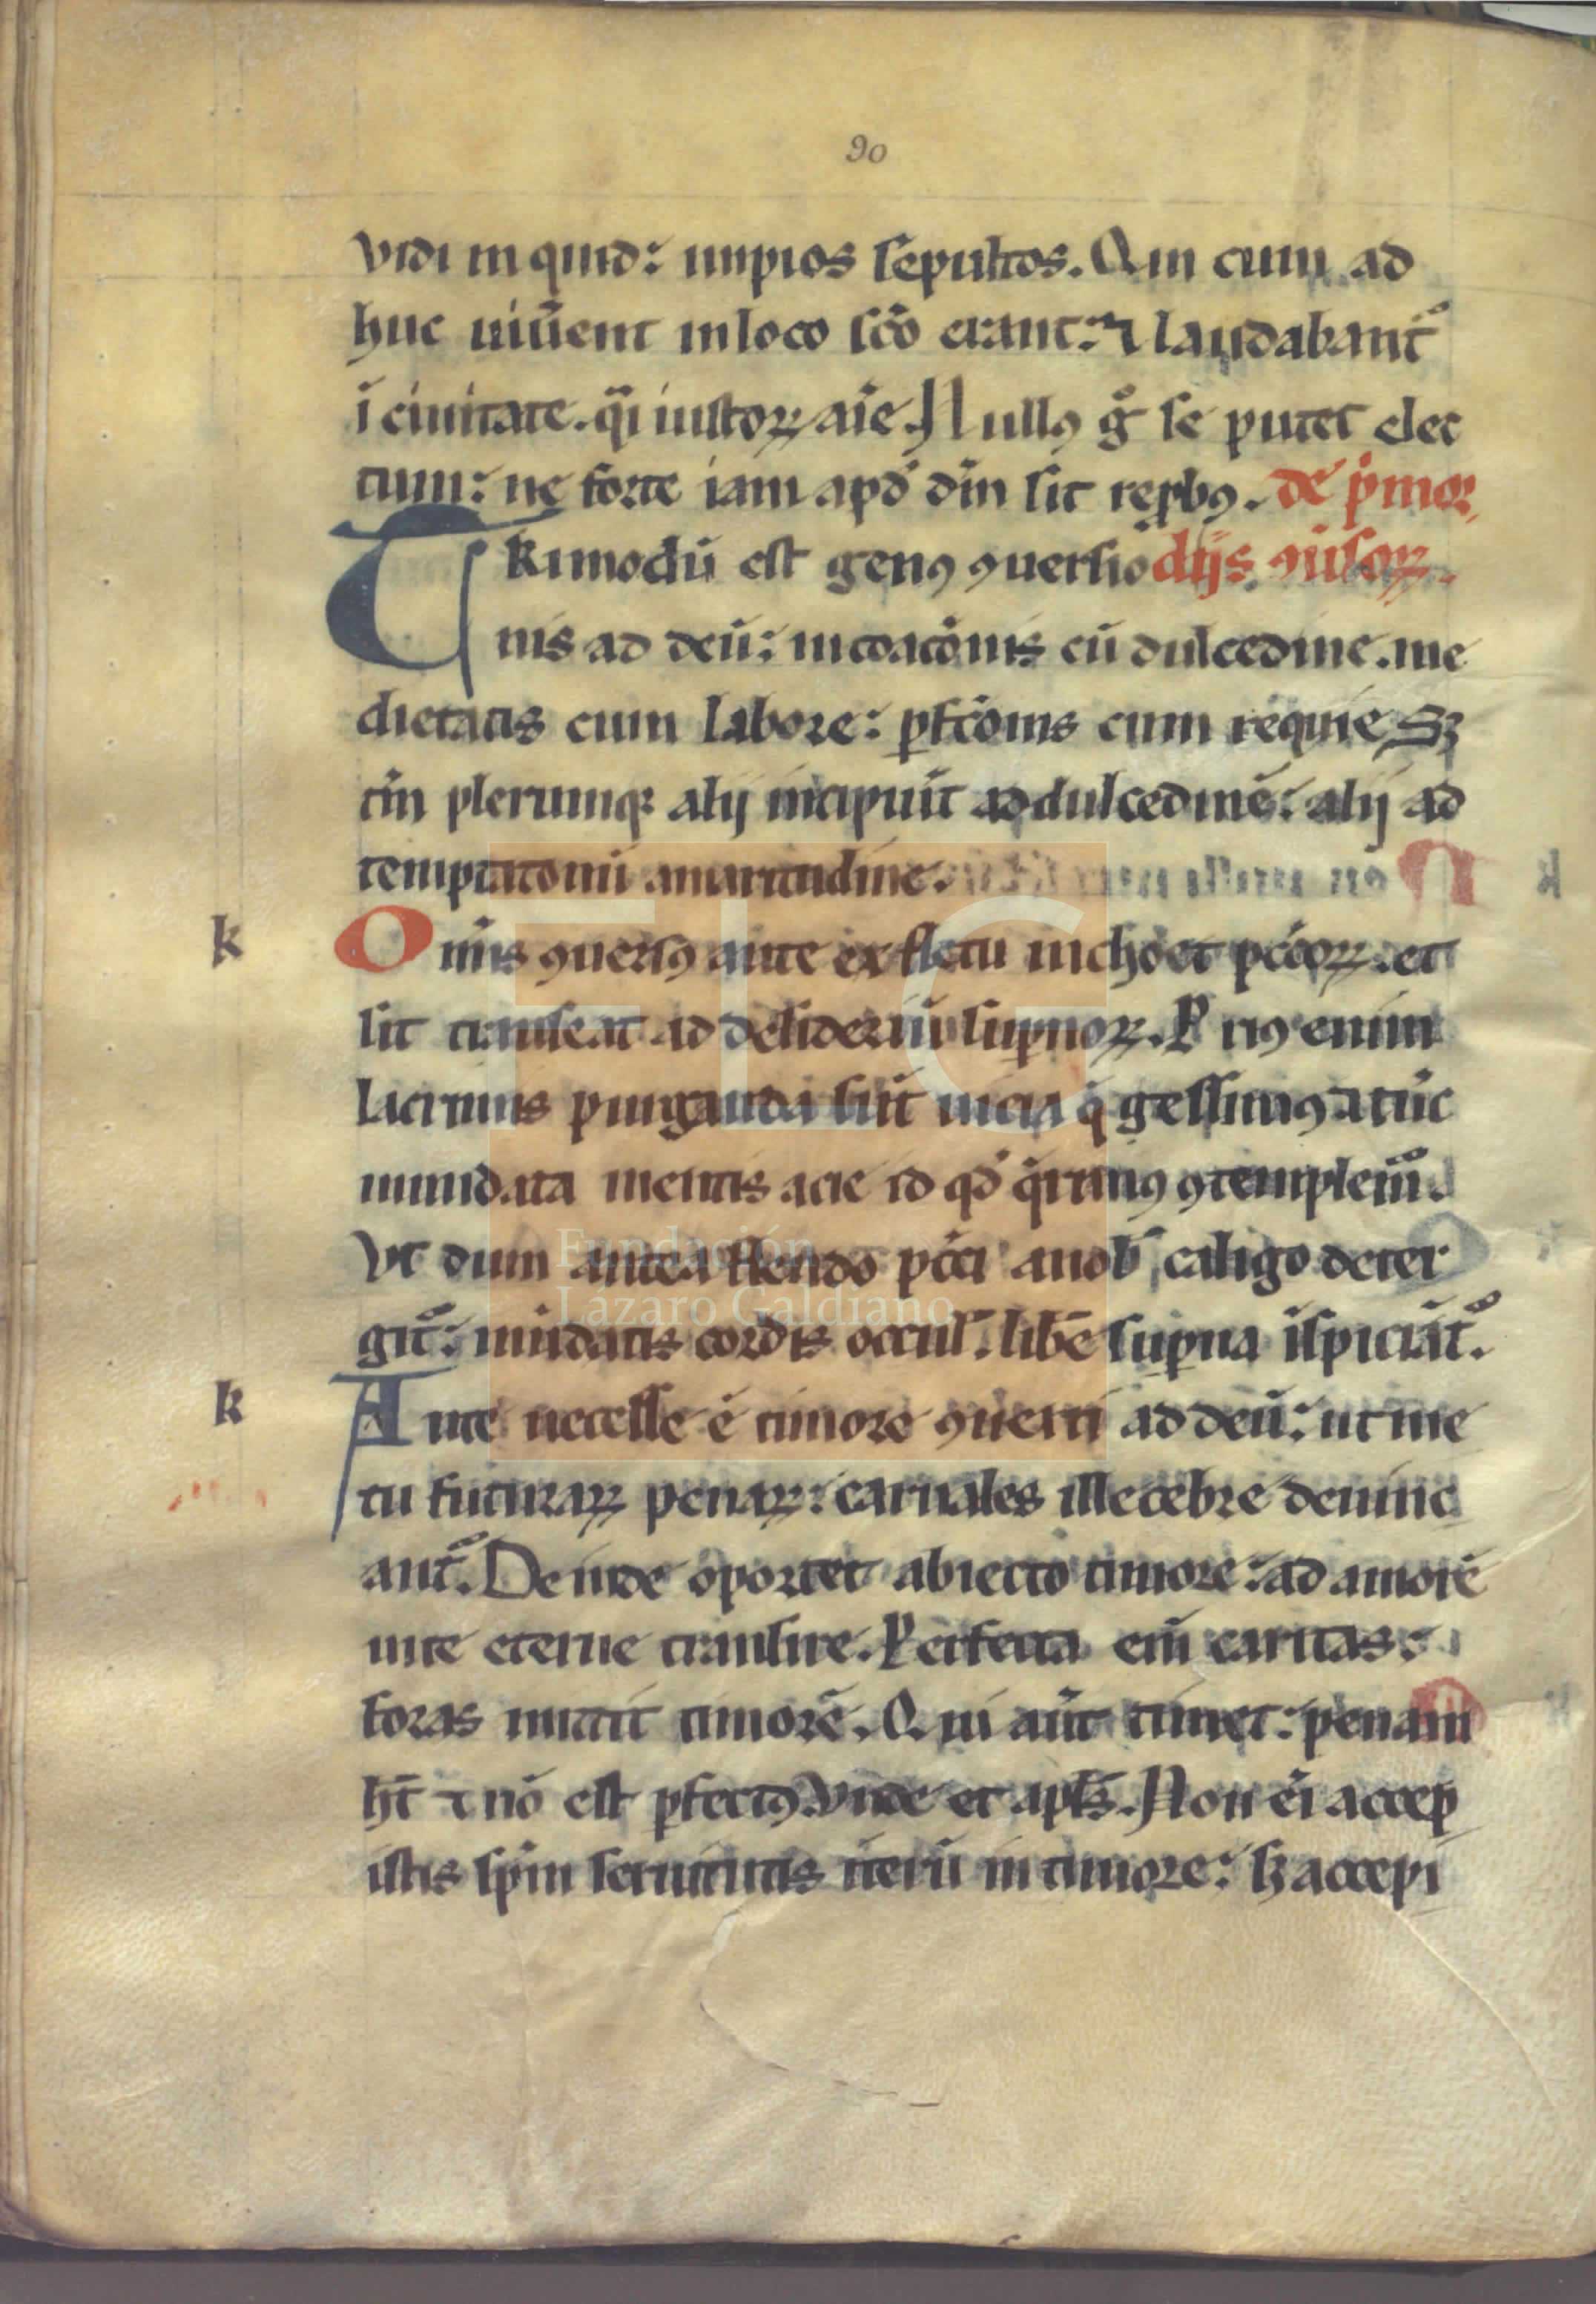 90
vidi in quid: impios sepultos. Qui cum ad
huc uiũent in loco sc̃o erant: ⁊ laudabant᷑
ĩ ciuitate. q̃i iustoꝝ aĩe. Nullꝰ g̊ se putet elec
tum: ne forte iam apd̕ dñm sit rep̱bꝰ. de p̕mor
TRimodũ est genꝰ ꝯuersio dijs ꝯuersoꝝ.
nis ad deũ: incoac̃onis cũ dulcedine. me
dietatis cum labore: ꝑfc̃onis cum requie Sꝫ
tñ plerumqꝫ alij incipiũt ad dulcedinẽ: alij ad
temptac̃onũ amaritudine.
k
Om̃is ꝯuersꝰ ante ex fletu inchoet pcc̃oꝝ. et
sic transeat ad desideriũ suꝑnoꝝ. Priꝰ enim
lacrimis purganda sũt uicia q̃ gessimꝰ ⁊ tũc
mundata mentis acie id qd̕ q̃rimus ꝯtemplem̃.
Vt dum antea flendo pcc̃i a nob̃ caligo deter
git᷑: mũdatis cordis ocul̕. libẽ suꝑna ĩspiciãt᷑.
k
Ante necesse ẽ timore ꝯuerti ad deũ: ut me
tu futuraꝝ penaꝝ: carnales illecebre deuinc
ant᷑. Deinde oportet abiecto timore: ad amorẽ
uite eterne transire. Perfecta eñi caritas:
foras mittit timorẽ. Qui aũt timet: penam
hт̃ ⁊ nõ est ꝑfectꝰ. Vnde et apl̃s. Non eĩ accep
istis sp̃m seruitutis iterũ in timore: sꝫ accepi
Fundación
Lázaro Galdiano
FLG